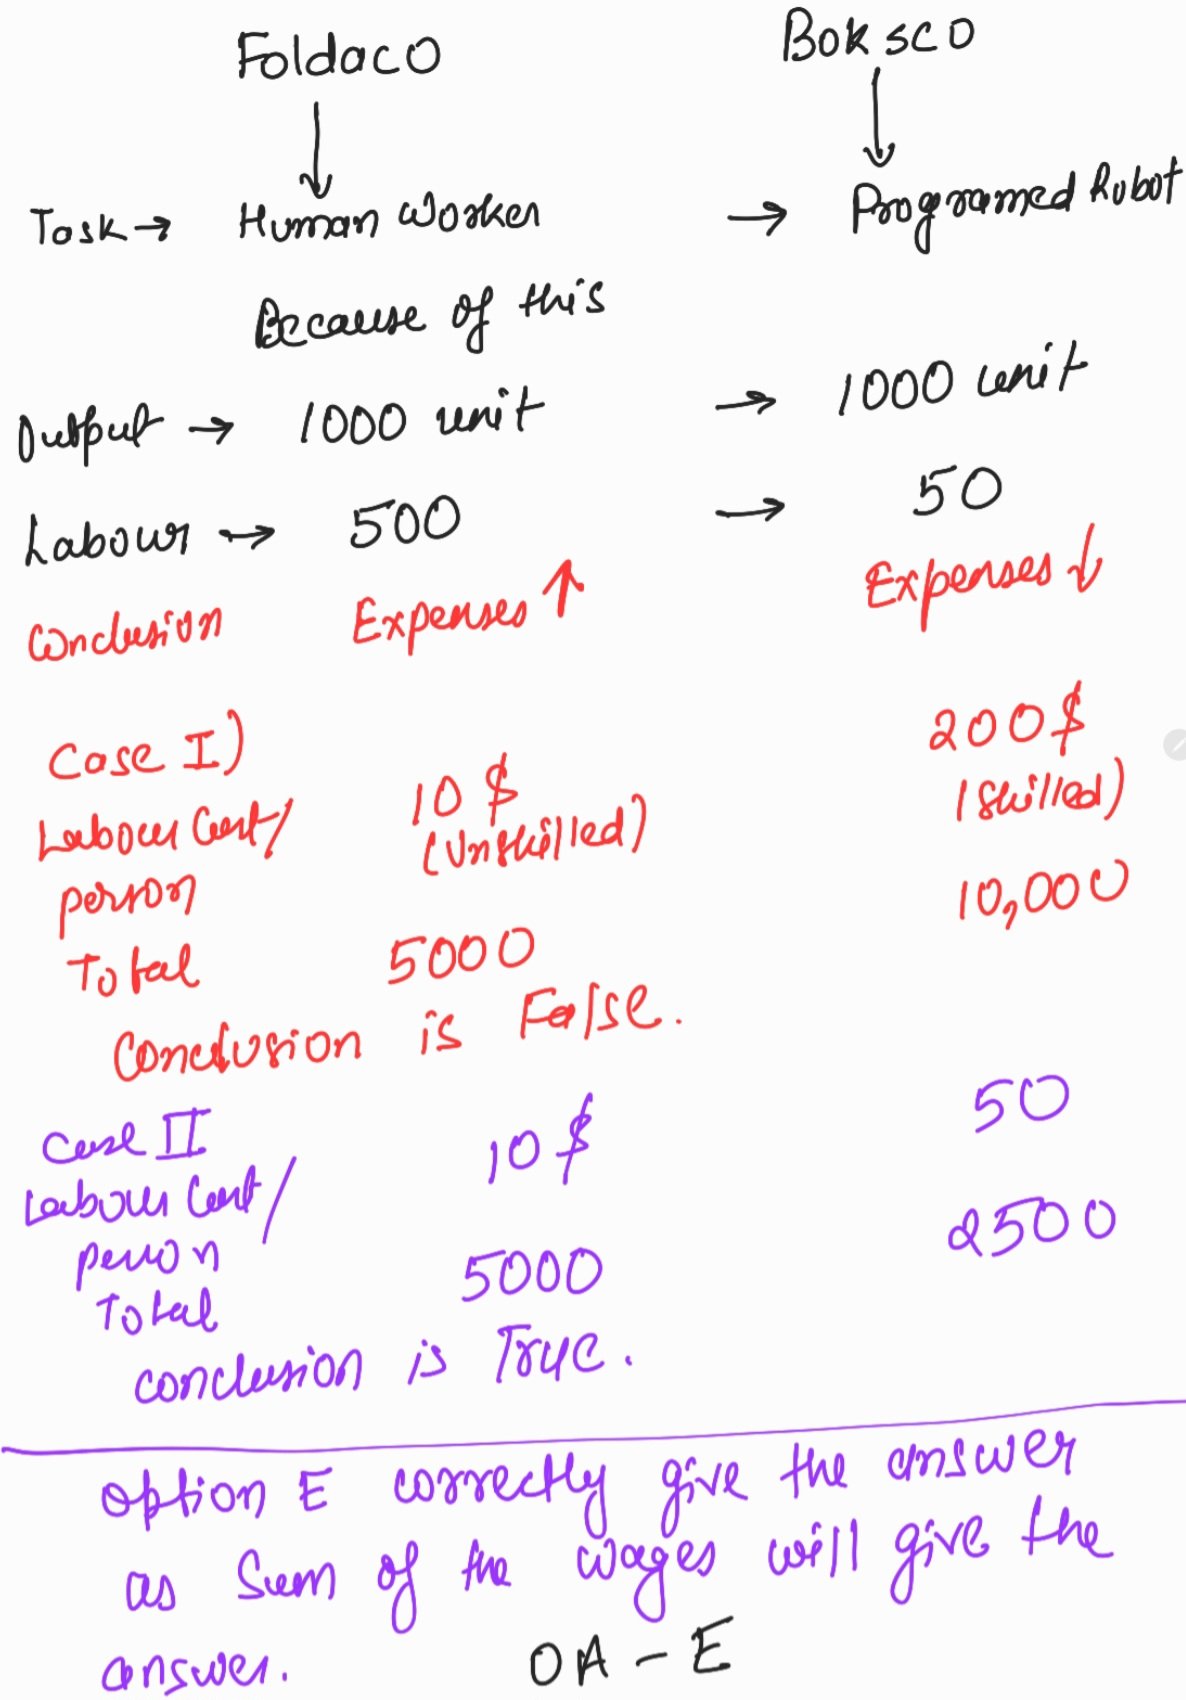 Foldaco Boksco
↓ ↓
Task → Human Worker → Programed Robot
Because of this
Output → 1000 unit → 1000 unit
Labour → 500 → 50
Conclusion Expenses ↑ Expenses ↓
Case I)
Labour Cost/ 10 $ 200 $
person (Unskilled) (Skilled)
Total 5000 10,000
Conclusion is False.
Case II
Labour Cost/ 10 $ 50
person
Total 5000 2500
conclusion is True.
option E correctly give the answer
as Sum of the wages will give the
answer. OA - E